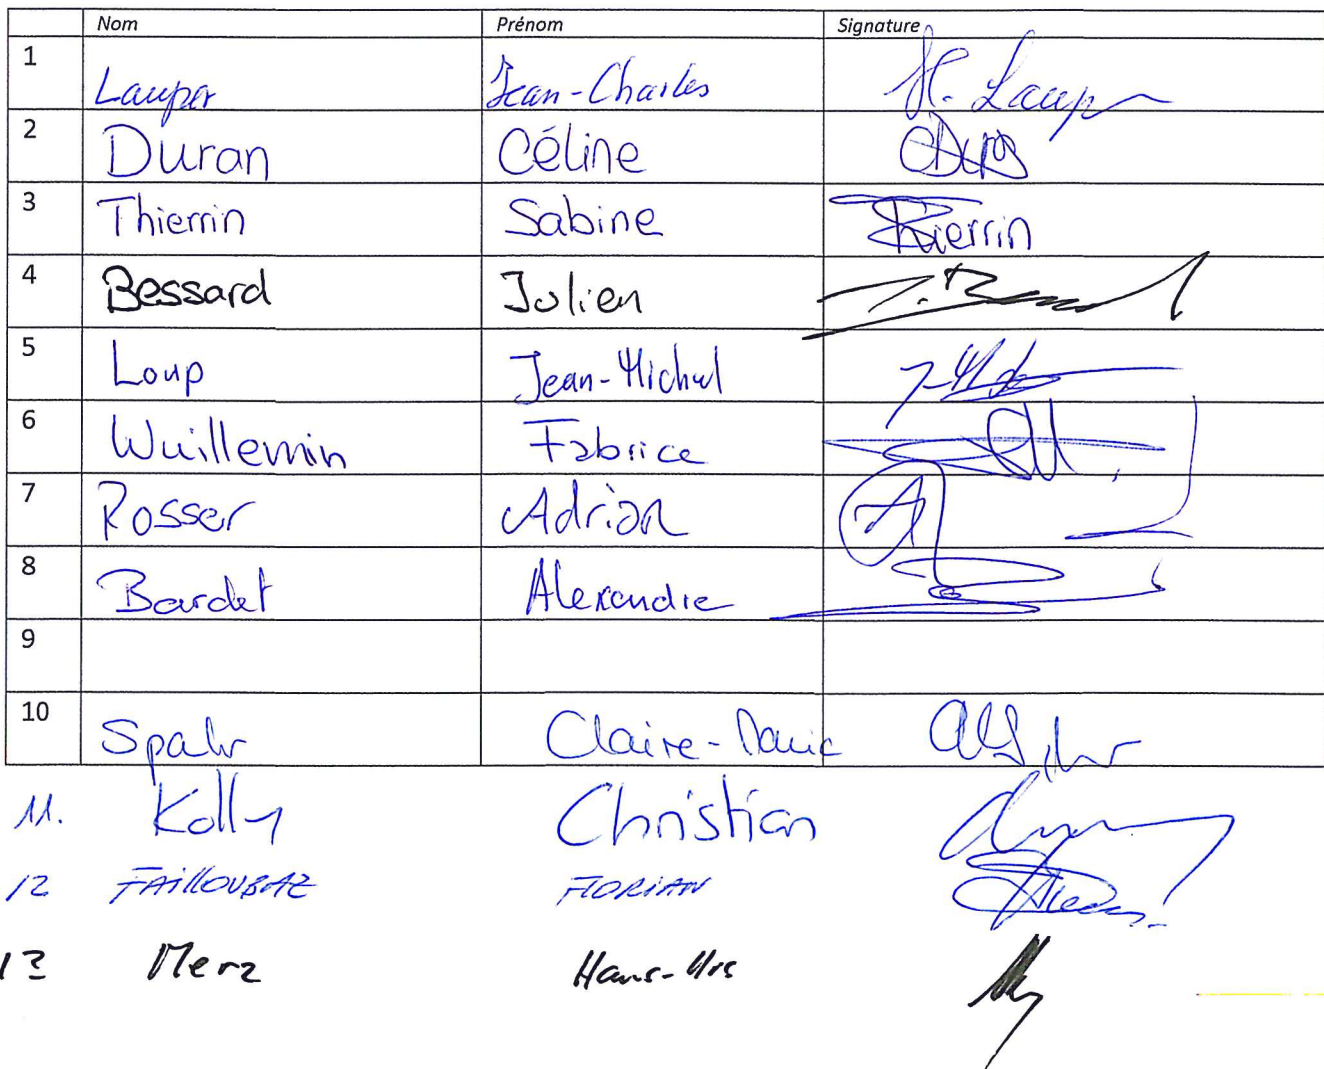 Nom Prénom Signature
1 Lauper Jean-Charles JC. Lauper
2 Duran Céline
3 Thierrin Sabine Thierrin
4 Bessard Julien J. Bessard
5 Loup Jean-Michel
6 Wuillemin Fabrice
7 Rosser Adrian
8 Bardet Alexandre
9
10 Spahr Claire-Marie
11. Kolly Christian
12 FAILLOUBAZ FLORIAN
13 Merz Hans-Urs